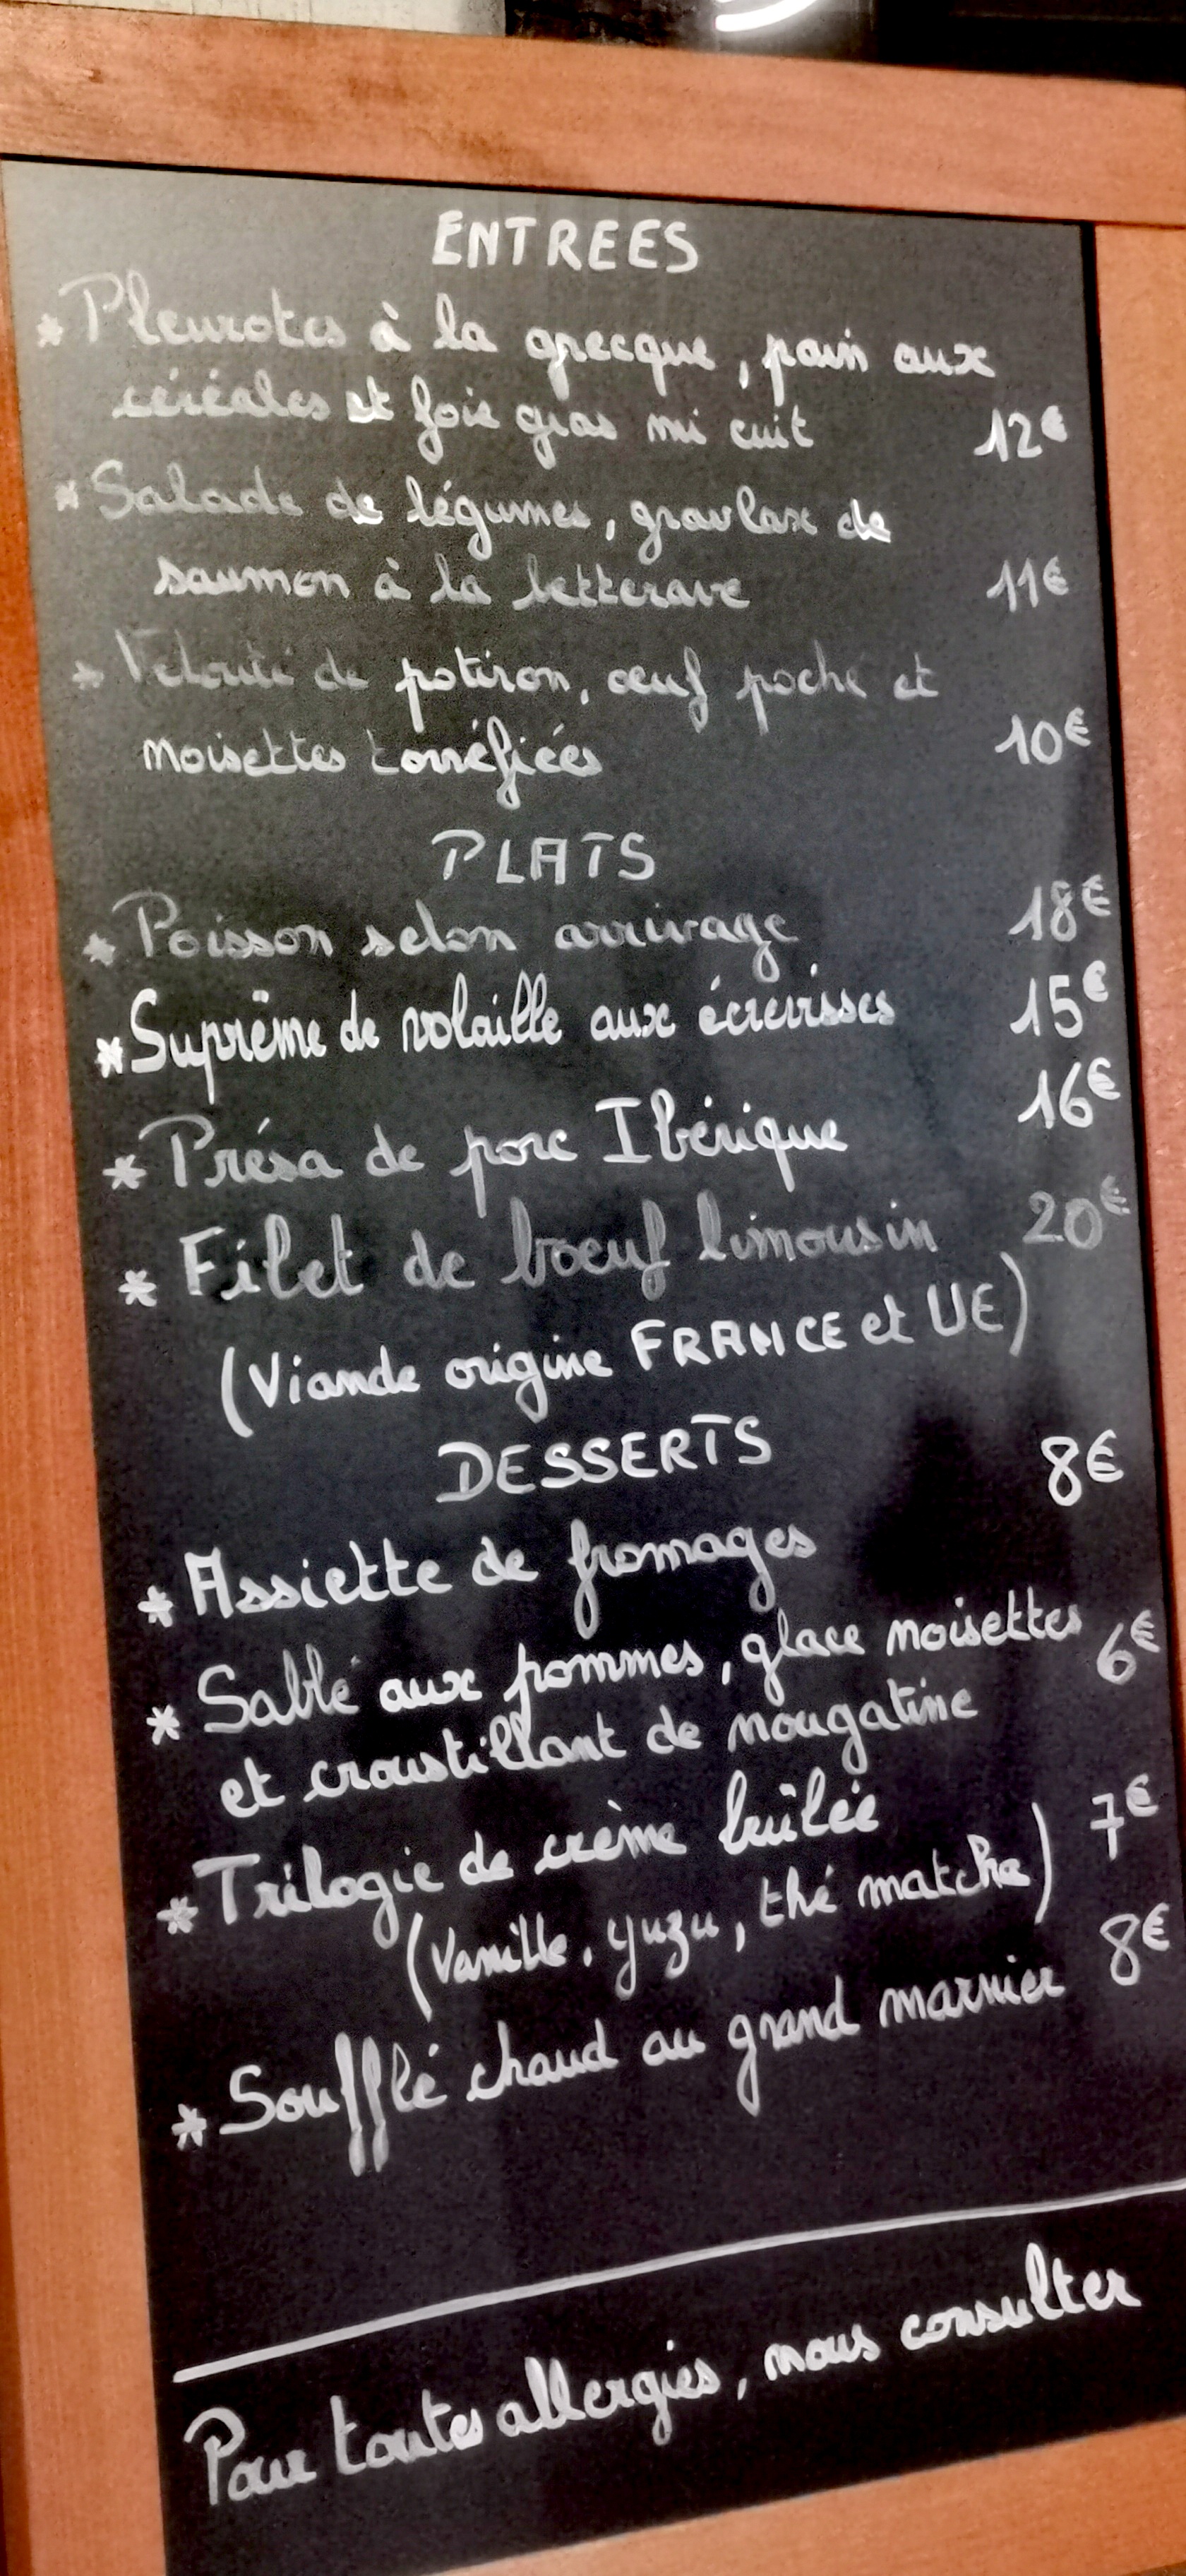 ENTREES
* Pleurotes à la grecque, pain aux
céréales et foie gras mi cuit 12€
* Salade de légumes, gravlax de
saumon à la betterave 11€
* Velouté de potiron, œuf poché et
noisettes torréfiées 10€
PLATS
* Poisson selon arrivage 18€
* Suprême de volaille aux écrevisses 15€
* Présa de porc Ibérique 16€
* Filet de boeuf limousin 20€
(Viande origine FRANCE et UE)
DESSERTS
* Assiette de fromages 8€
* Sablé aux pommes, glace noisettes 6€
et croustillant de nougatine
* Trilogie de crème brûlée 7€
(Vanille, yuzu, thé matcha)
* Soufflé chaud au grand marnier 8€
Pour toutes allergies, nous consulter